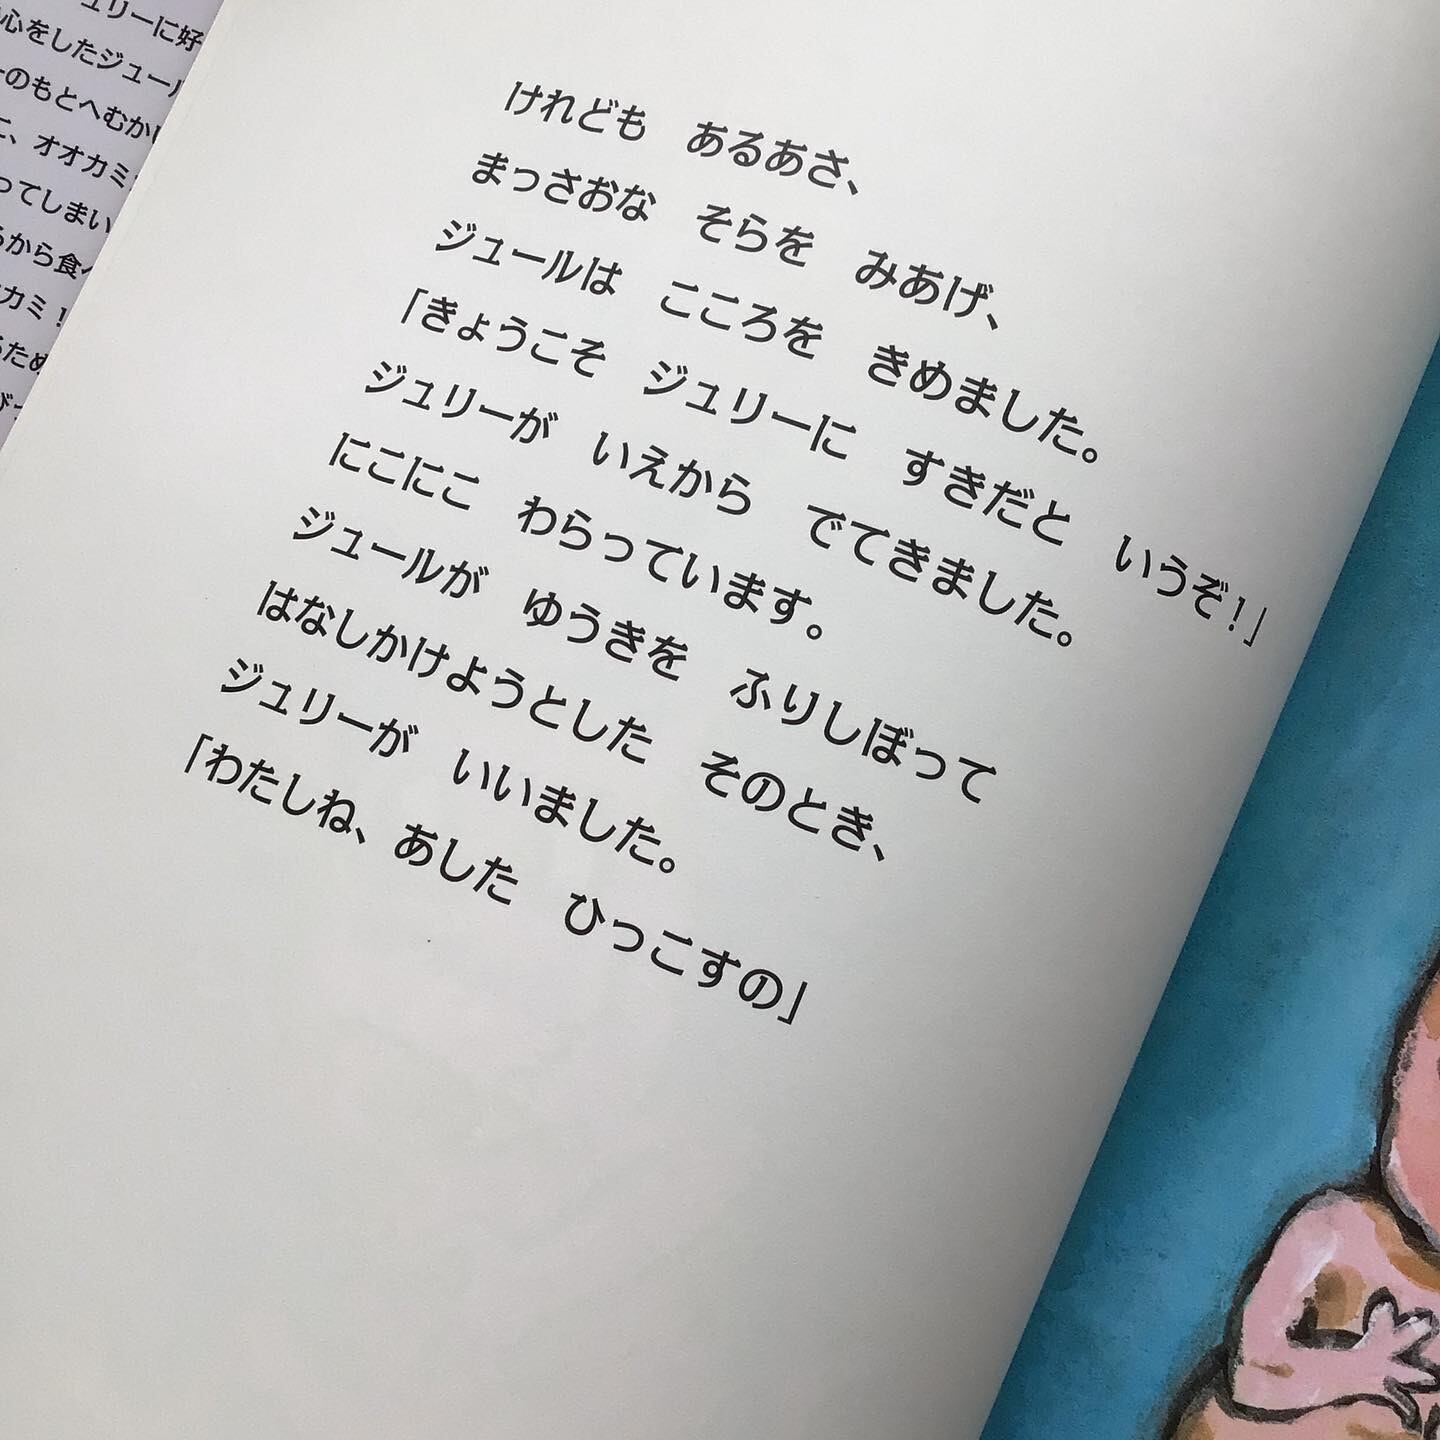 ュリーに好
心をしたジュール
のもとへむかい
に、オオカミ
ってしまい
るから食べ
カミ！
るため
けれども　あるあさ、
まっさおな　そらを　みあげ、
ジュールは　こころを　きめました。
「きょうこそ　ジュリーに　すきだと　いうぞ！」
ジュリーが　いえから　でてきました。
にこにこ　わらっています。
ジュールが　ゆうきを　ふりしぼって
はなしかけようとした　そのとき、
ジュリーが　いいました。
「わたしね、あした　ひっこすの」